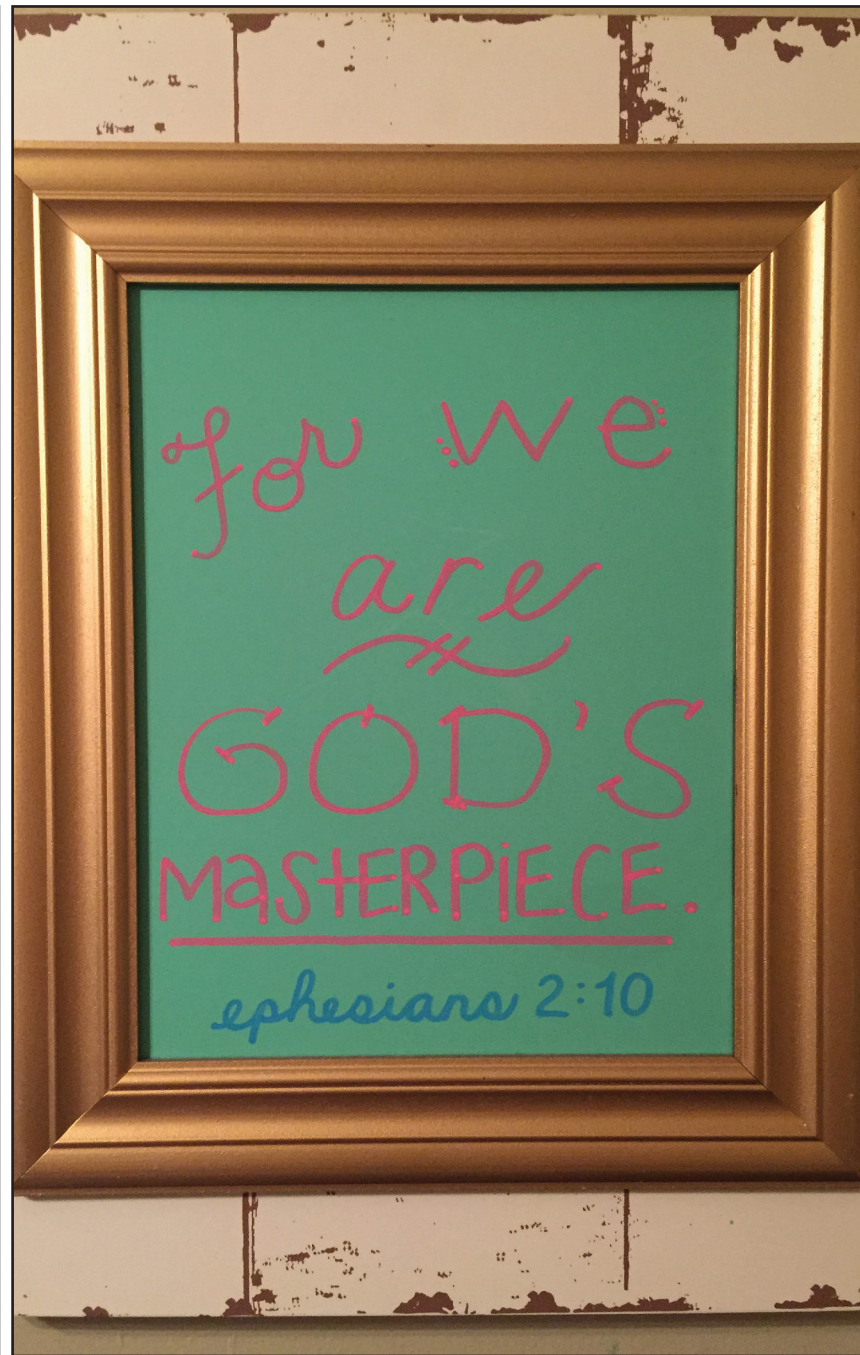 for we
are
GOD'S
MasTERPiECE.
ephesians 2:10